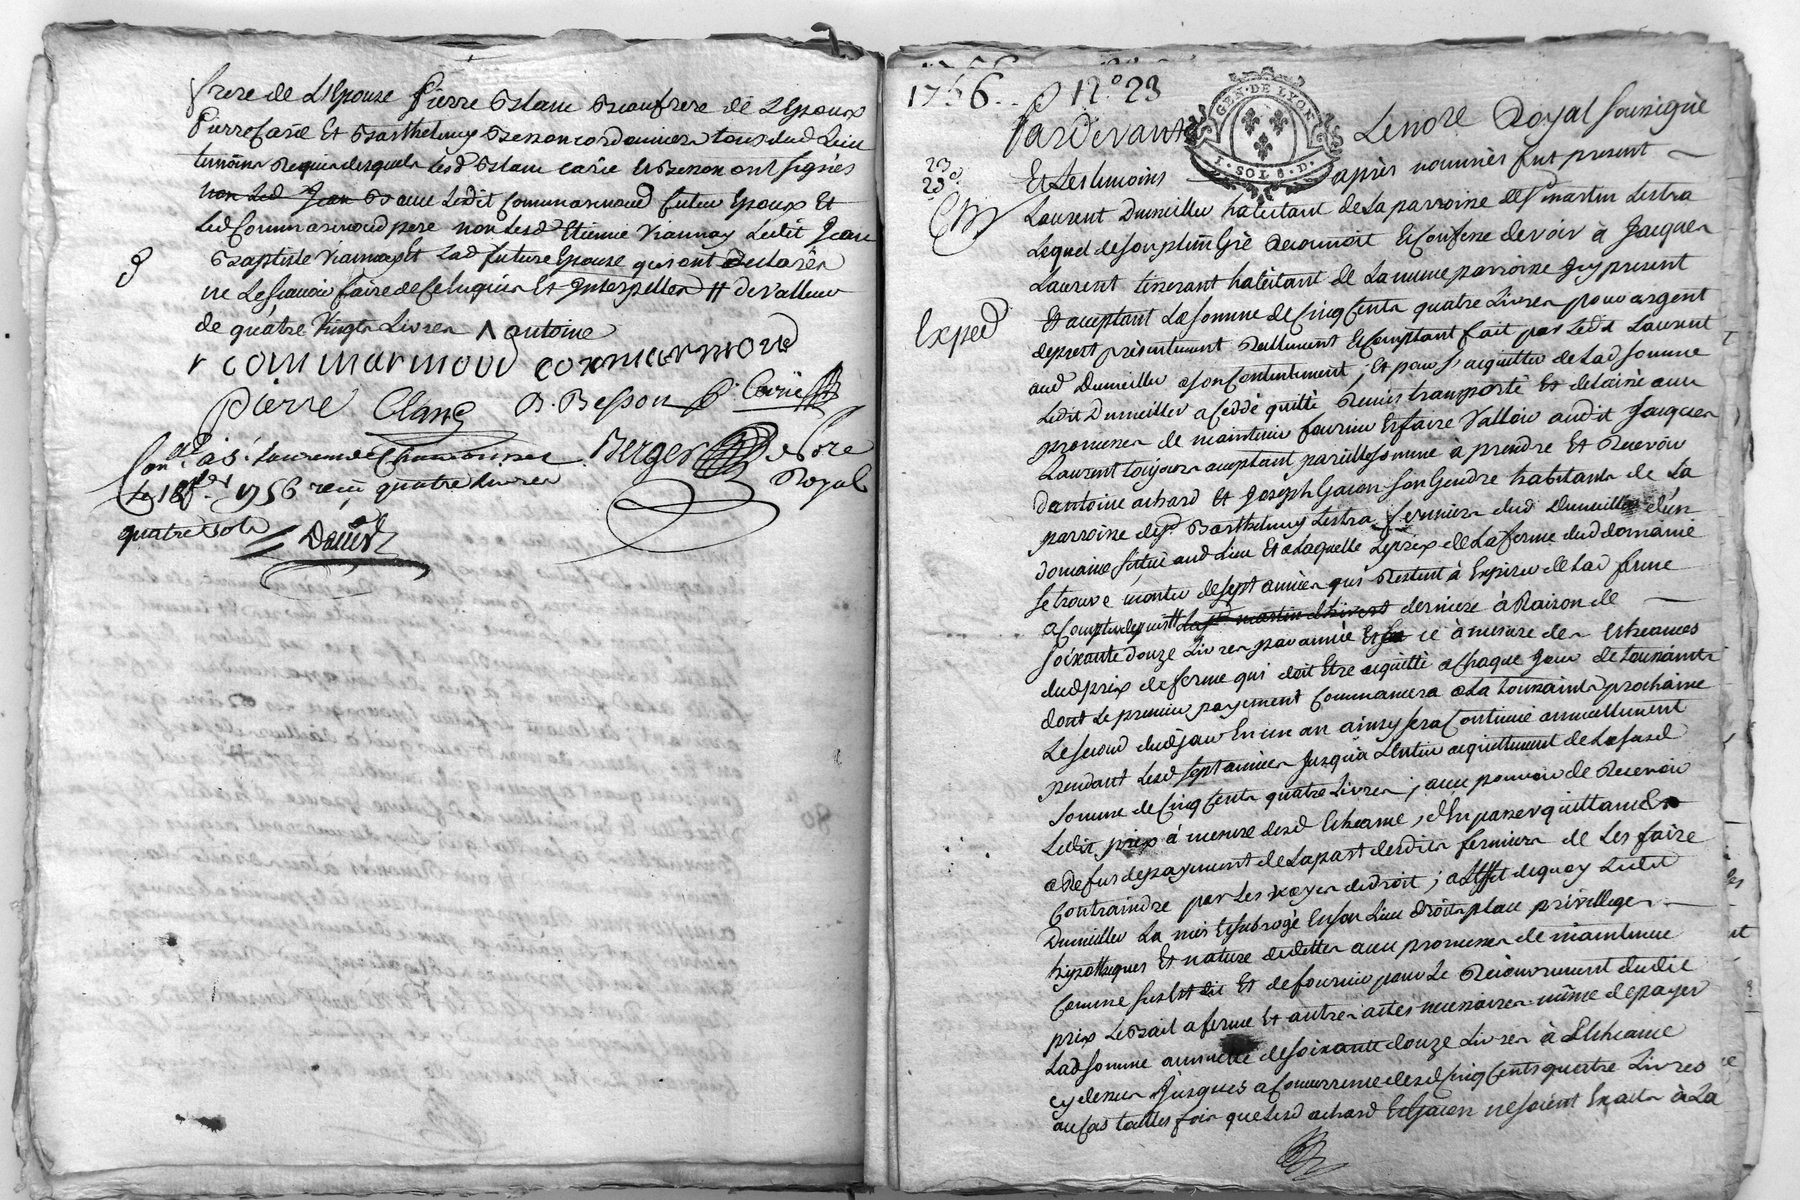 frere de L'Epouse Pierre Clanc Beaufrere de L'Epoux
Pierre Carië Et Barthelemy Besson cordonniers tous dud Lieu
temoins Requis desquels Lesd Clanc carië et Besson ont signés
non Led Jean avec Ledit Commarmoud futeur Epoux Et
Led Commarmoud pere non Lesd Etienne Viannay Ledit Jean
Baptiste Viannay Et Lad future Epouse qui ont declarës
ne Le sçavoir faire de ce Enquis Et Interpellés # de valleur
de quatre Vingts Livres Λ antoine
commarmoud commarmoud
pierre Clanc B. Besson P. Carië
Berger No.re Royal
Con.lé à St. Laurent de Chamousset
Le 18 1756 reçu quatre Livres
quatre sols
1756.. N°23
GEN. DE LYON
1. SOL 8. D.
Pardevant Le no.re Royal soussigné
23
23e.
Et Les temoins après nommés fut present
Laurent Dumillier habitant de La parroisse de St. martin Lestra
Lequel de son plein Gré Reconnoit Et Confesse devoir à Jacques
Laurent tisserant habitant de La meme parroisse Icy present
Exped
Et aceptant La somme de Cinq Cents quatre Livres pour argent
de prest présentement Réellement Et Comptant fait par Ledit Laurent
aud Dumillier a son Contentement ; Et pour s'aiquitter de Lad somme
Ledit Dumillier a Ceddé quitté Remis transporté Et delaissé avec
promesses de maintenir fournir Et faire Valloir audit Jacques
Laurent toujours aceptant pareille somme à prendre Et Recevoir
d'antoine achard Et Joseph Gacon son Gendre habitants de La
parroisse de St. Barthelemy Lestra fermiers dud Dumillier d'un
domaine situé aud Lieu Et a Laquelle Le prix de La ferme dud domaine
se trouve monter de sept années qui Restent à Expirer de Lad ferme
a Compter depuis # La St. martin d'hivert derniere à Raison de
soixante douze Livres par année Et ce à mesure des Echeances
dud prix de ferme qui doit Etre aiquitté a Chaque Jour de toussaints
dont Le premier payement Commancera a La toussaints prochaine
Le second dud Jour En un an ainsy sera Continué annuellement
pendant Lesd sept années Jusqu'a L'entier aiquittement de La susd
somme de Cinq Cents quatre Livres ; avec pouvoir de Recevoir
Ledit prix à mesure desd Echeance, d'En passer quittances
a Refus de payement de La part desdits fermiers de Les faire
Contraindre par Les voyes de droit ; a L'Effet de quoy Ledit
Dumillier La mis Et subrogé En son Lieu droits place privilleges
hypotheques Et nature de dettes avec promesses de maintenue
Comme susest dit Et de fournir pour Le Recouvrement dudit
prix Le Bail a ferme Et autres actes necessaires même de payer
Lad somme annuelle de soixante douze Livres à L'Echeance
cy dessus Jusques a Concurrence desd Cinq Cents quatre Livres
au Cas toutes fois que Lesd achard Et Gacon ne soient Exacts à La